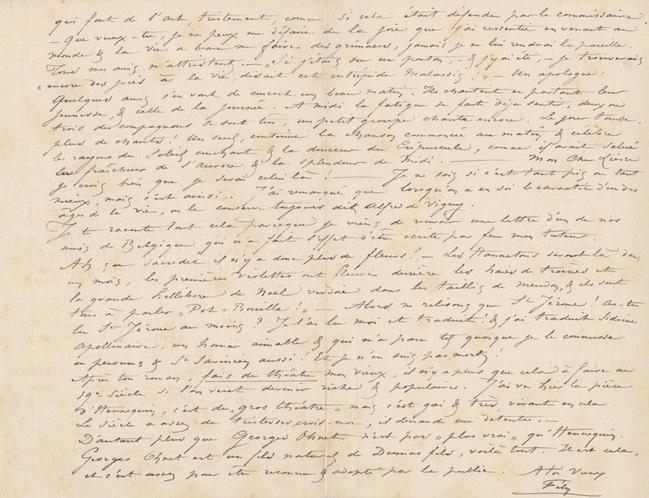 qui font de l'Art, tristement, comme si cela était défendu par le commissaire.
– que veux-tu, je ne peux me défaire de la joie que j'ai ressentie en venant au
monde & la vie a beau me faire des grimaces, jamais je ne lui rendrai la pareille.
Tous mes amis m'attristent. – "Si j'étais sur un ponton, – & j'y ai été, – je trouverais
"encore des joies à la vie, disait cet intrépide Malassis!" – Un apologue:
Quelques amis s'en vont de concert un beau matin. Ils chantent en partant leur
jeunesse, & celle de la journée. A midi la fatigue se fait déjà sentir, deux ou
trois des compagnons se sont tus, un petit groupe chante encore. Le jour tombe,
plus de chants! Un seul, continue la chanson commencée au matin, & célèbre
le rayon du Soleil couchant & la douceur du Crépuscule, comme il avait salué
la fraîcheur de l'aurore & la splendeur de Midi. – Mon Cher
je crois bien que je serai celui là! – Je ne sais si c'est tant pis ou tant
mieux, mais c'est ainsi. – J'ai remarqué que lorsqu'on a en soi le caractère d'un des
âges de la vie, on le conserve toujours dit Alfred de Vigny.
Je te raconte tout cela parceque je viens de recevoir une lettre d'un de nos
amis de Belgique qui m'a fait l'effet d'être écrite par feu mon tuteur.
Ah ça sacredié il n'y a donc plus de fleurs! – Les Hannetons seront là dans
un mois, les premières violettes ont fleuri derrière les haies de troènes et
la grande Hellébore de Noël verdoie dans les taillis de meudon, & ils sont
tous à parler "Pot Bouille!" – Alors ne relisons que St Jérôme! As-tu
lu St Jérôme au moins? Je l'ai lu moi et traduit! & j'ai traduit Sidoine
Apollinaire, un homme aimable & qui m'a paru tel quoique je le connusse
en personne & St Savinien aussi! Et je n'en suis pas mort!
Après ton roman, fais du théâtre mon vieux, il n'y a plus que cela à faire au
19e siècle si l'on veut devenir riche & populaire. J'ai vu hier la pièce
d'Hennequin, c'est du "gros théâtre" mais c'est gai & très vivant en cela.
Le siècle a assez de tristesses crois-moi, il demande une détente. –
D'autant plus que Georges Ohnet n'est pas "plus vrai" qu'Hennequin.
Georges Ohnet est un fils naturel de Dumas fils, voilà tout. Il est cela,
et c'est assez pour être reconnu & adopté par le public. A toi vieux
Fély